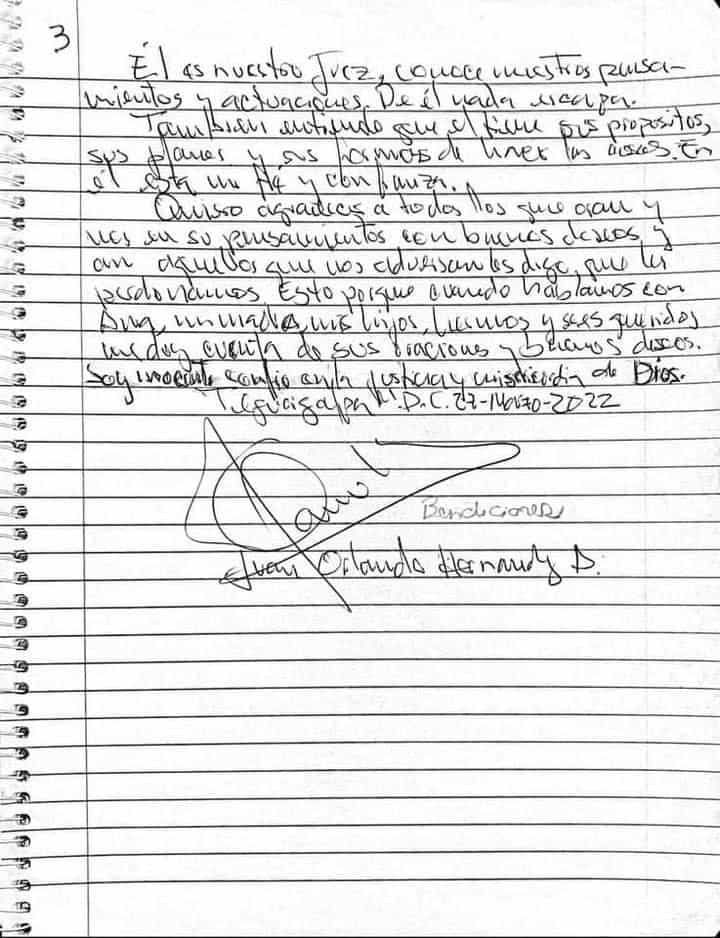 3
Él es nuestro Juez, conoce nuestros pensa-
mientos y actuaciones. De él nada escapa.
Tambien entiendo que el tiene sus propositos,
sus planes y sus formas de hacer las cosas. En
él está mi Fé y confianza.
Quiero agradecer a todos los que oran y
nos en su pensamientos con buenos deseos, y
aquellos que nos adversan les digo, que les
perdonamos. Esto porque cuando hablamos con
Ana, mi madre, mis hijos, hermanos y seres queridos
me doy cuenta de sus oraciones y buenos deseos.
Soy inocente confío en la justicia y misericordia de Dios.
Tegucigalpa M.D.C. 27-Marzo-2022
Bendiciones
Juan Orlando Hernandz A.